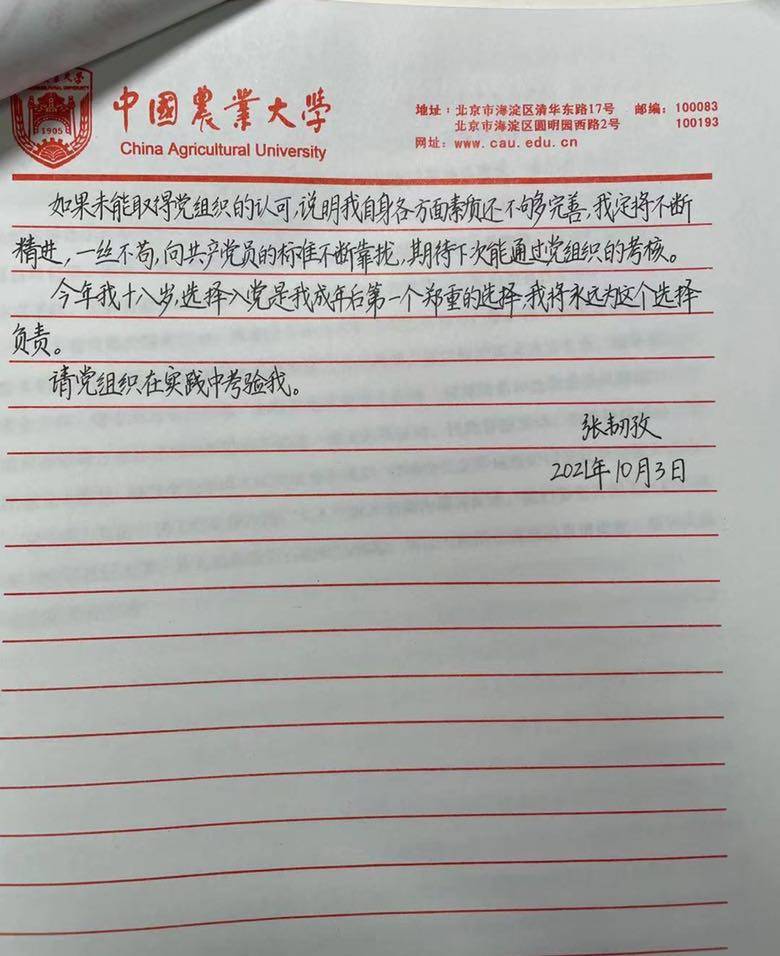 中國農業大學
China Agricultural University
1905
地址：北京市海淀区清华东路17号 邮编：100083
北京市海淀区圆明园西路2号 100193
网址：www.cau.edu.cn
如果未能取得党组织的认可，说明我自身各方面素质还不够完善，我定将不断
精进，一丝不苟，向共产党员的标准不断靠拢，期待下次能通过党组织的考核。
今年我十八岁，选择入党是我成年后第一个郑重的选择，我将永远为这个选择
负责。
请党组织在实践中考验我。
张韧孜
2021年10月3日